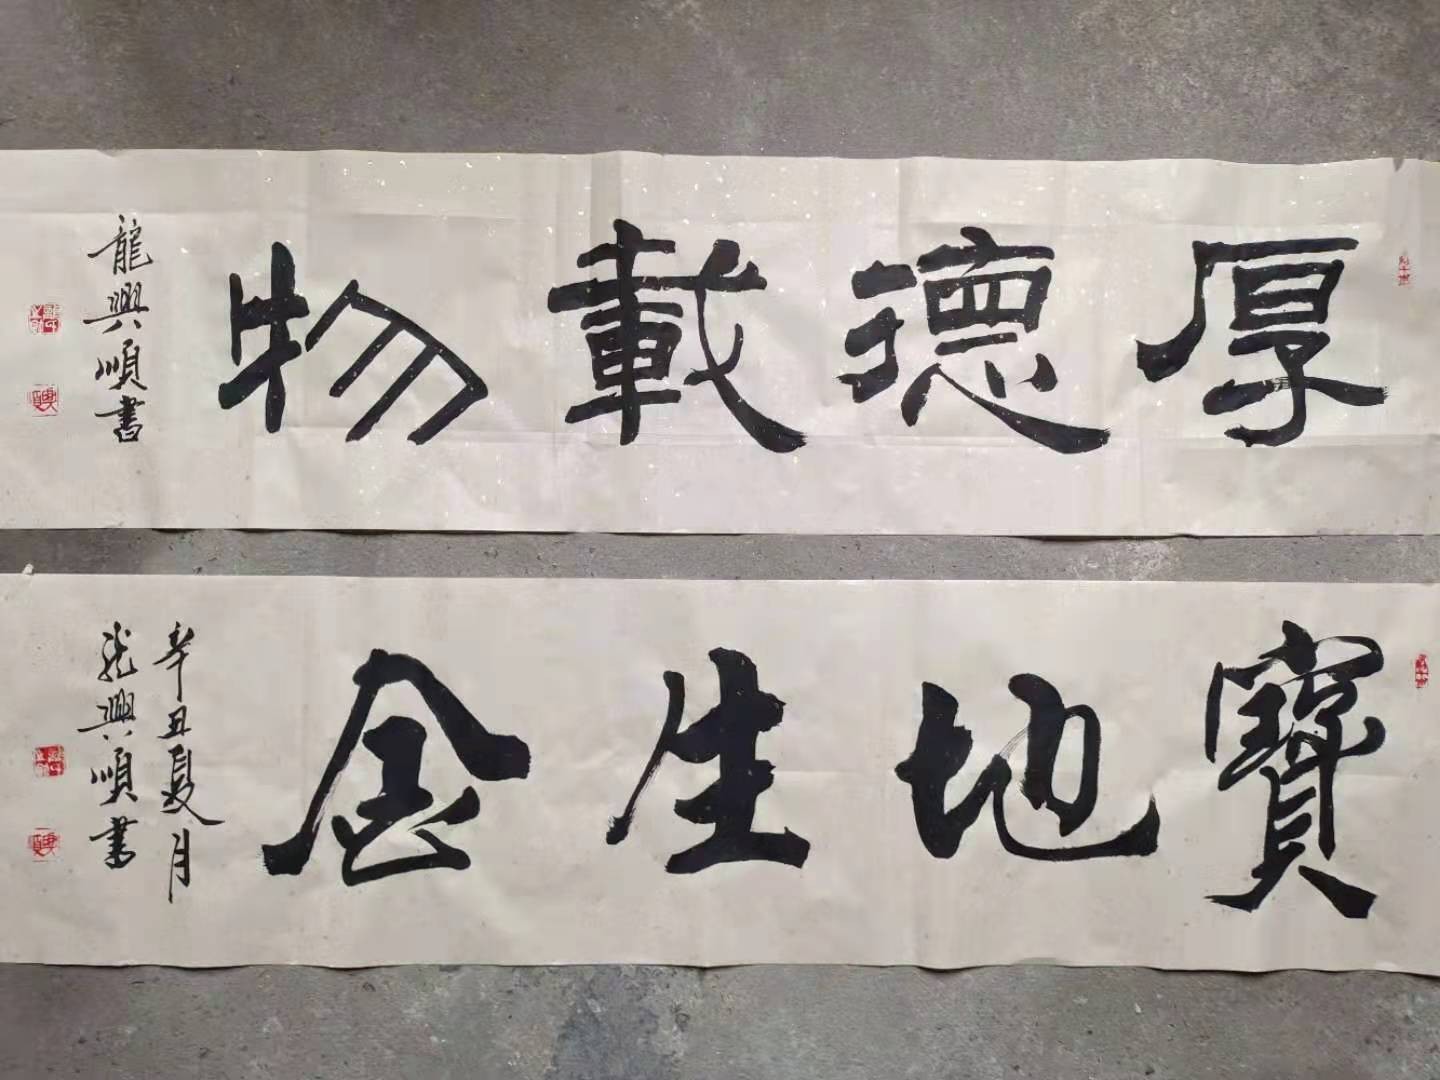 厚德載物
龍興順書
寶地生金
辛丑夏月
龍興順書